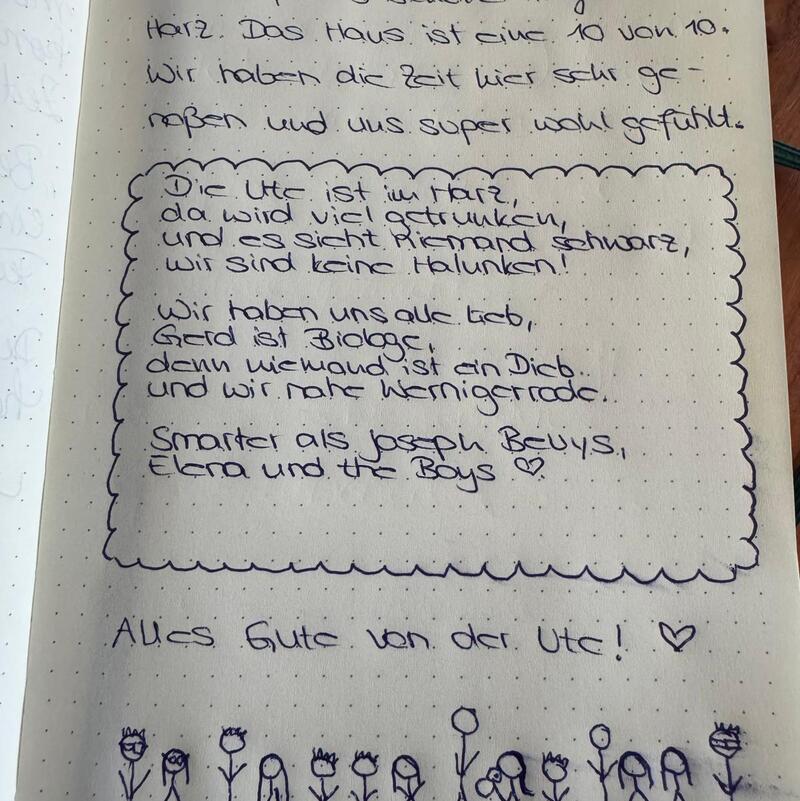 Harz. Das Haus ist eine 10 von 10.
Wir haben die Zeit hier sehr ge-
noßen und uns super wohl gefühlt.
Die Ute ist im Harz,
da wird viel getrunken,
und es sieht Niemand schwarz,
wir sind keine Halunken!
Wir haben uns alle lieb,
Gerd ist Biologe,
denn niemand ist ein Dieb..
und wir nahe Wernigerrode..
Smarter als Joseph Beuys,
Elena und the Boys ♡
Alles Gute von der Ute! ♡